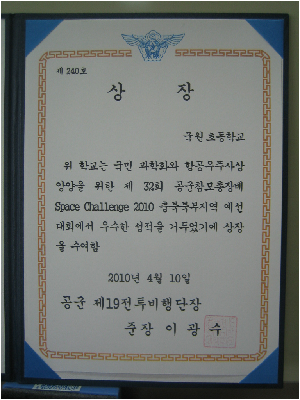 제 240호
상 장
국원 초등학교
위 학교는 국민 과학화와 항공우주사상
앙양을 위한 제 32회 공군참모총장배
Space Challenge 2010 충북북부지역 예선
대회에서 우수한 성적을 거두었기에 상장
을 수여함
2010년 4월 10일
공군 제19전투비행단장
준장 이 광 수